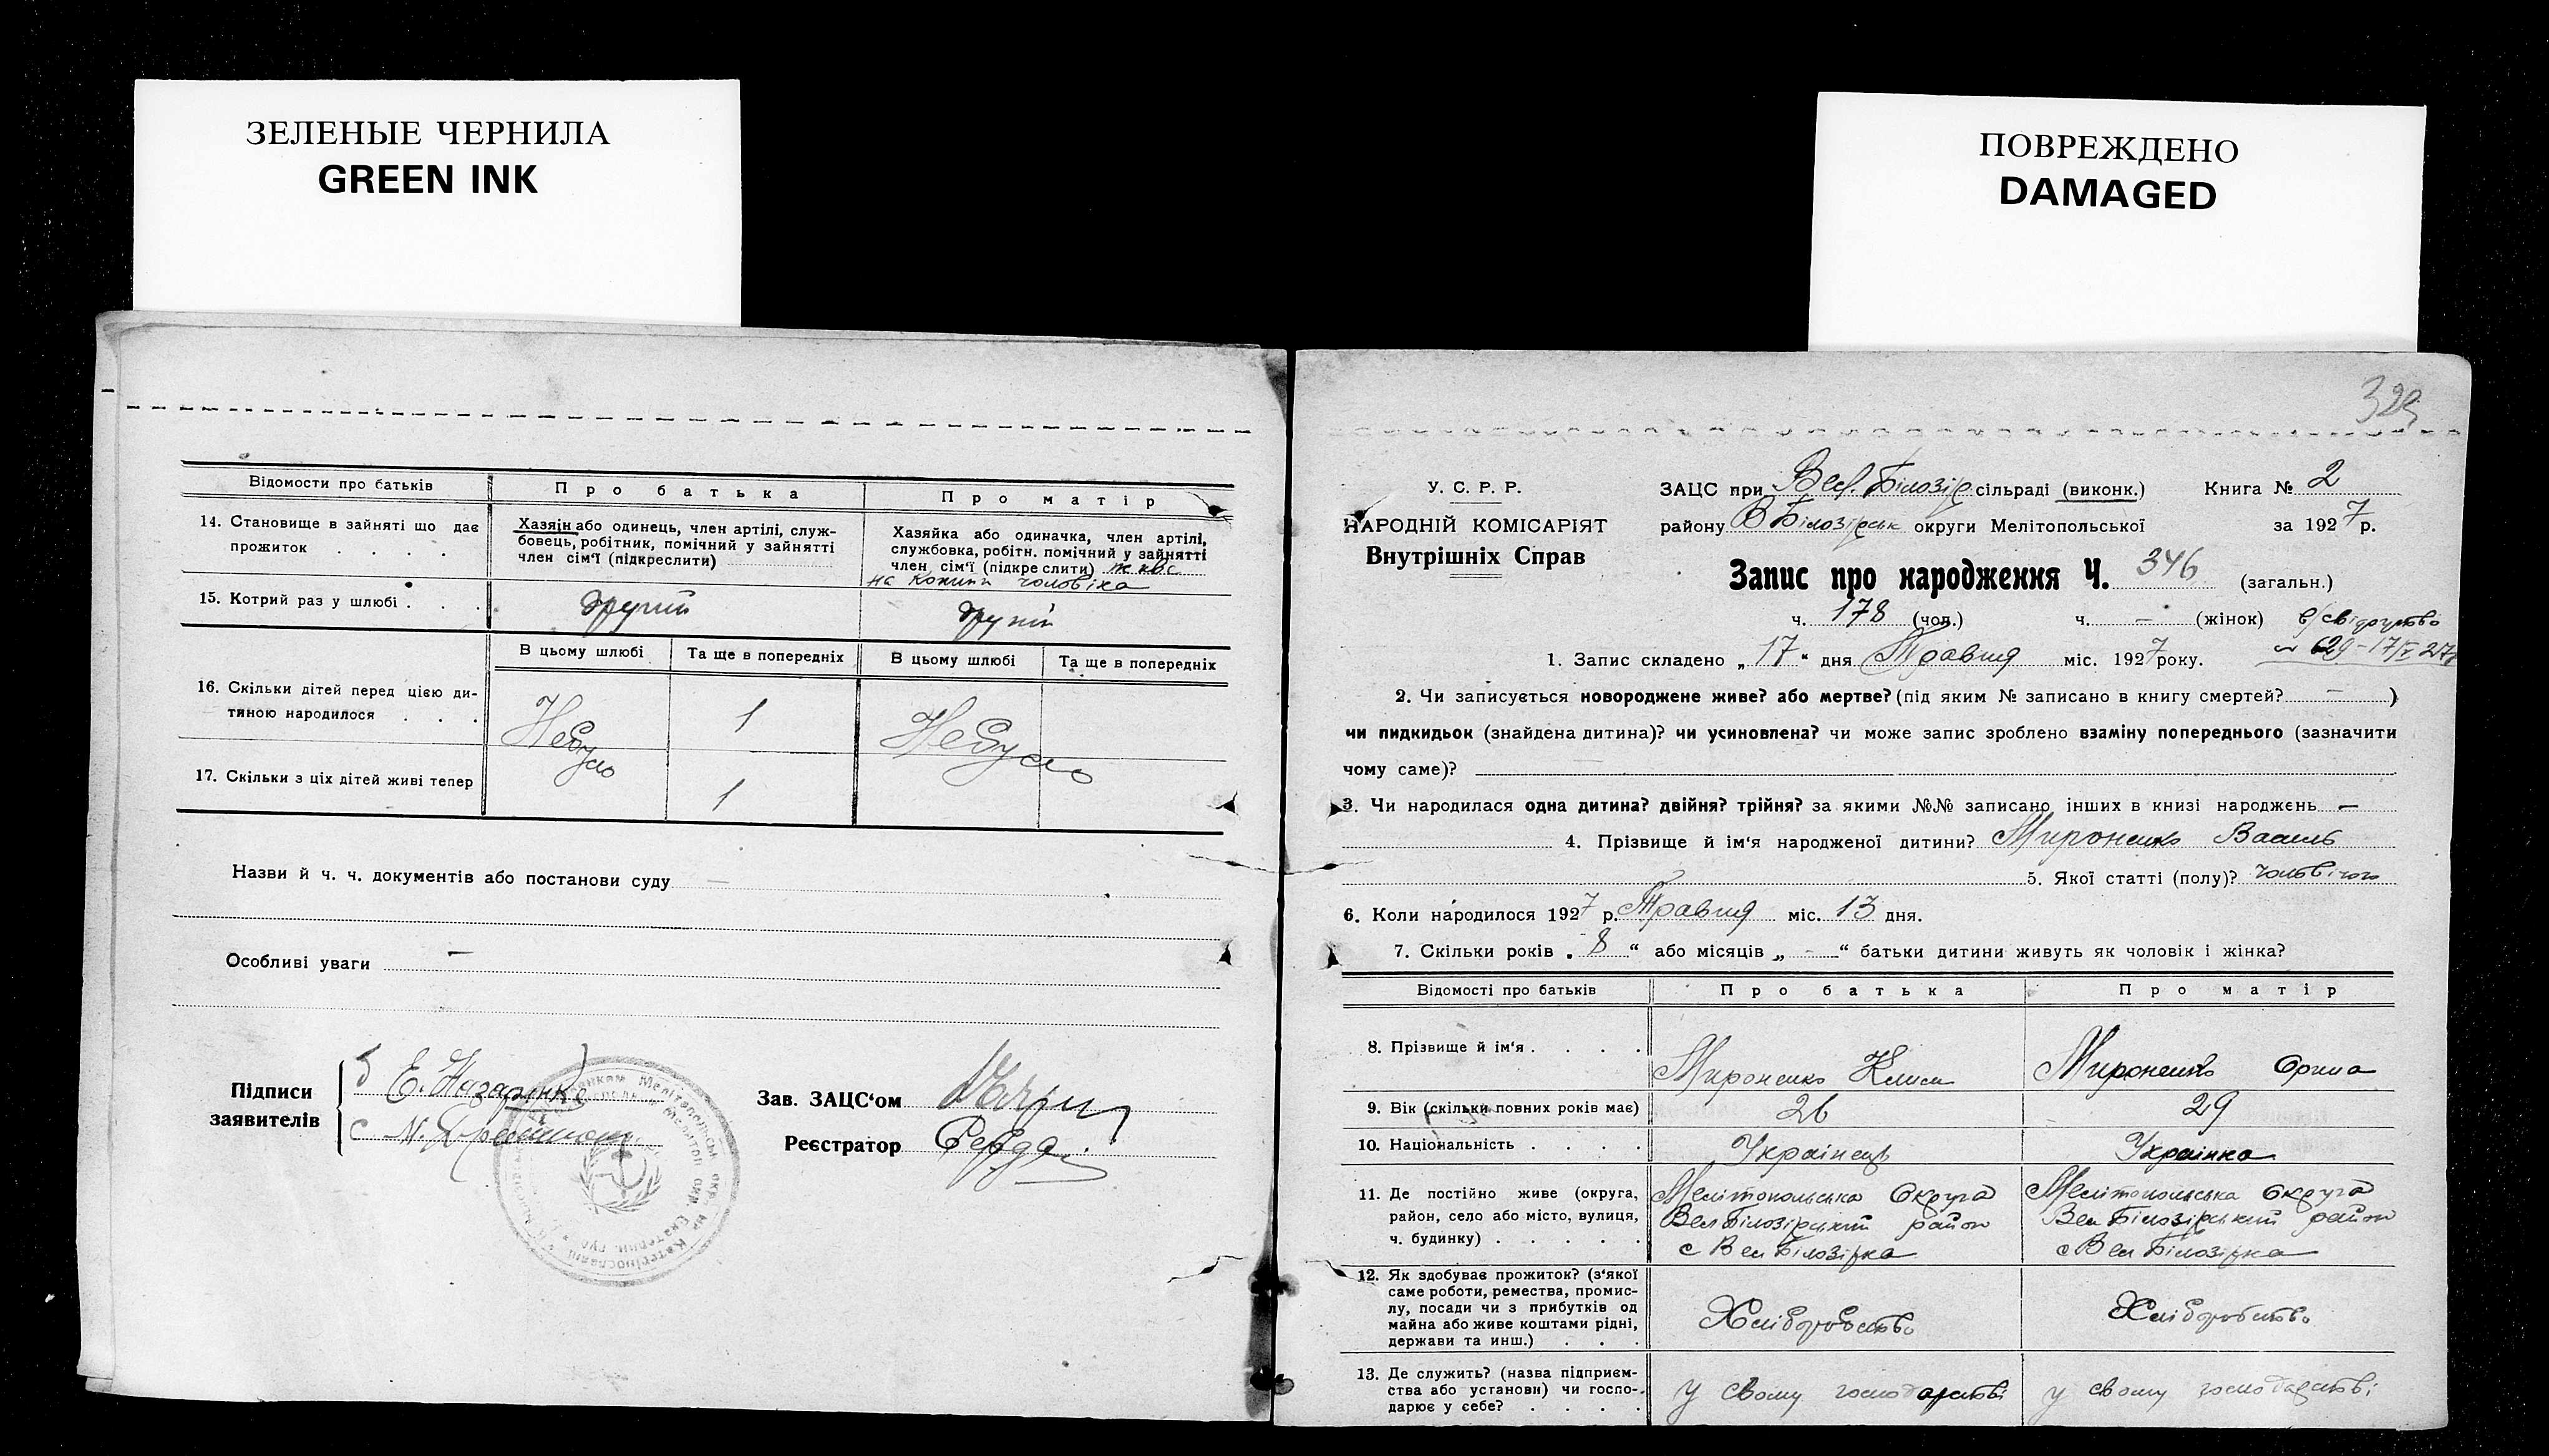 ЗЕЛЕНЫЕ ЧЕРНИЛА
GREEN INK
ПОВРЕЖДЕНО
DAMAGED
Відомости про батьків
Про батька
Про матір
14. Становище в зайняті що дає прожиток . . . .
Хазяін або одинець, член артілі, служ-
бовець, робітник, помічний у зайнятті
член сім'ї (підкреслити)
Хазяйка або одиначка, член артілі,
службовка, робітн. помічний у зайнятті
член сім'ї (підкре слити) живе
на кошти чоловіка
15. Котрий раз у шлюбі . . .
другий
другий
В цьому шлюбі
Та ще в попередніх
В цьому шлюбі
Та ще в попередніх
16. Скільки дітей перед цією ди-
тиною народилося . . .
Небуло
1
Небуло
17. Скільки з ціх дітей живі тепер
1
Назви й ч. ч. документів або постанови суду —
Особливі уваги —
Підписи
заявителів
б Е. Назаренко
с М.
Зав. ЗАЦС'ом
Реєстратор Середа
329
У. С. Р. Р.
НАРОДНІЙ КОМІСАРІЯТ
Внутрішніх Справ
ЗАЦС при Вел. Білозір сільраді (виконк.) Книга № 2
району В Білозірськ округи Мелітопольської за 1927 р.
Запис про народження Ч. 346 (загальн.)
ч. 178 (чол.) ч. — (жінок) в/свідоцтво
№ 629-17/V 27р
1. Запис складено „17“ дня Травня міс. 1927 року.
2. Чи записується новороджене живе? або мертве? (під яким № записано в книгу смертей? — )
чи пидкидьок (знайдена дитина)? чи усиновлена? чи може запис зроблено взаміну попереднього (зазначити
чому саме)?
3. Чи народилася одна дитина? двійня? трійня? за якими №№ записано інших в книзі народжень —
4. Прізвище й ім'я народженої дитини? Мироненко Василь
5. Якої статті (полу)? чоловічого
6. Коли народилося 1927 р. Травня міс. 13 дня.
7. Скільки років „8“ або місяців „-“ батьки дитини живуть як чоловік і жінка?
Відомості про батьків
Про батька
Про матір
8. Прізвище й ім'я . . . .
Мироненко Клим
Мироненко Орина
9. Вік (скільки повних років має)
26
29
10. Національність . . . .
Українець
Українка
11. Де постійно живе (округа,
район, село або місто, вулиця,
ч. будинку) . . . . .
Мелітопольська Округа
Вел Білозірський район
с Вел Білозірка
Мелітопольська Округа
Вел Білозірський район
с Вел Білозірка
12. Як здобуває прожиток? (з'якої
саме роботи, ремества, промис-
лу, посади чи з прибутків од
майна або живе коштами рідні,
держави та инш.) . . .
Хліборобство
Хліборобство
13. Де служить? (назва підприєм-
ства або установи) чи госпо-
дарює у себе? . . . .
У свому господарстві
у свому господарстві